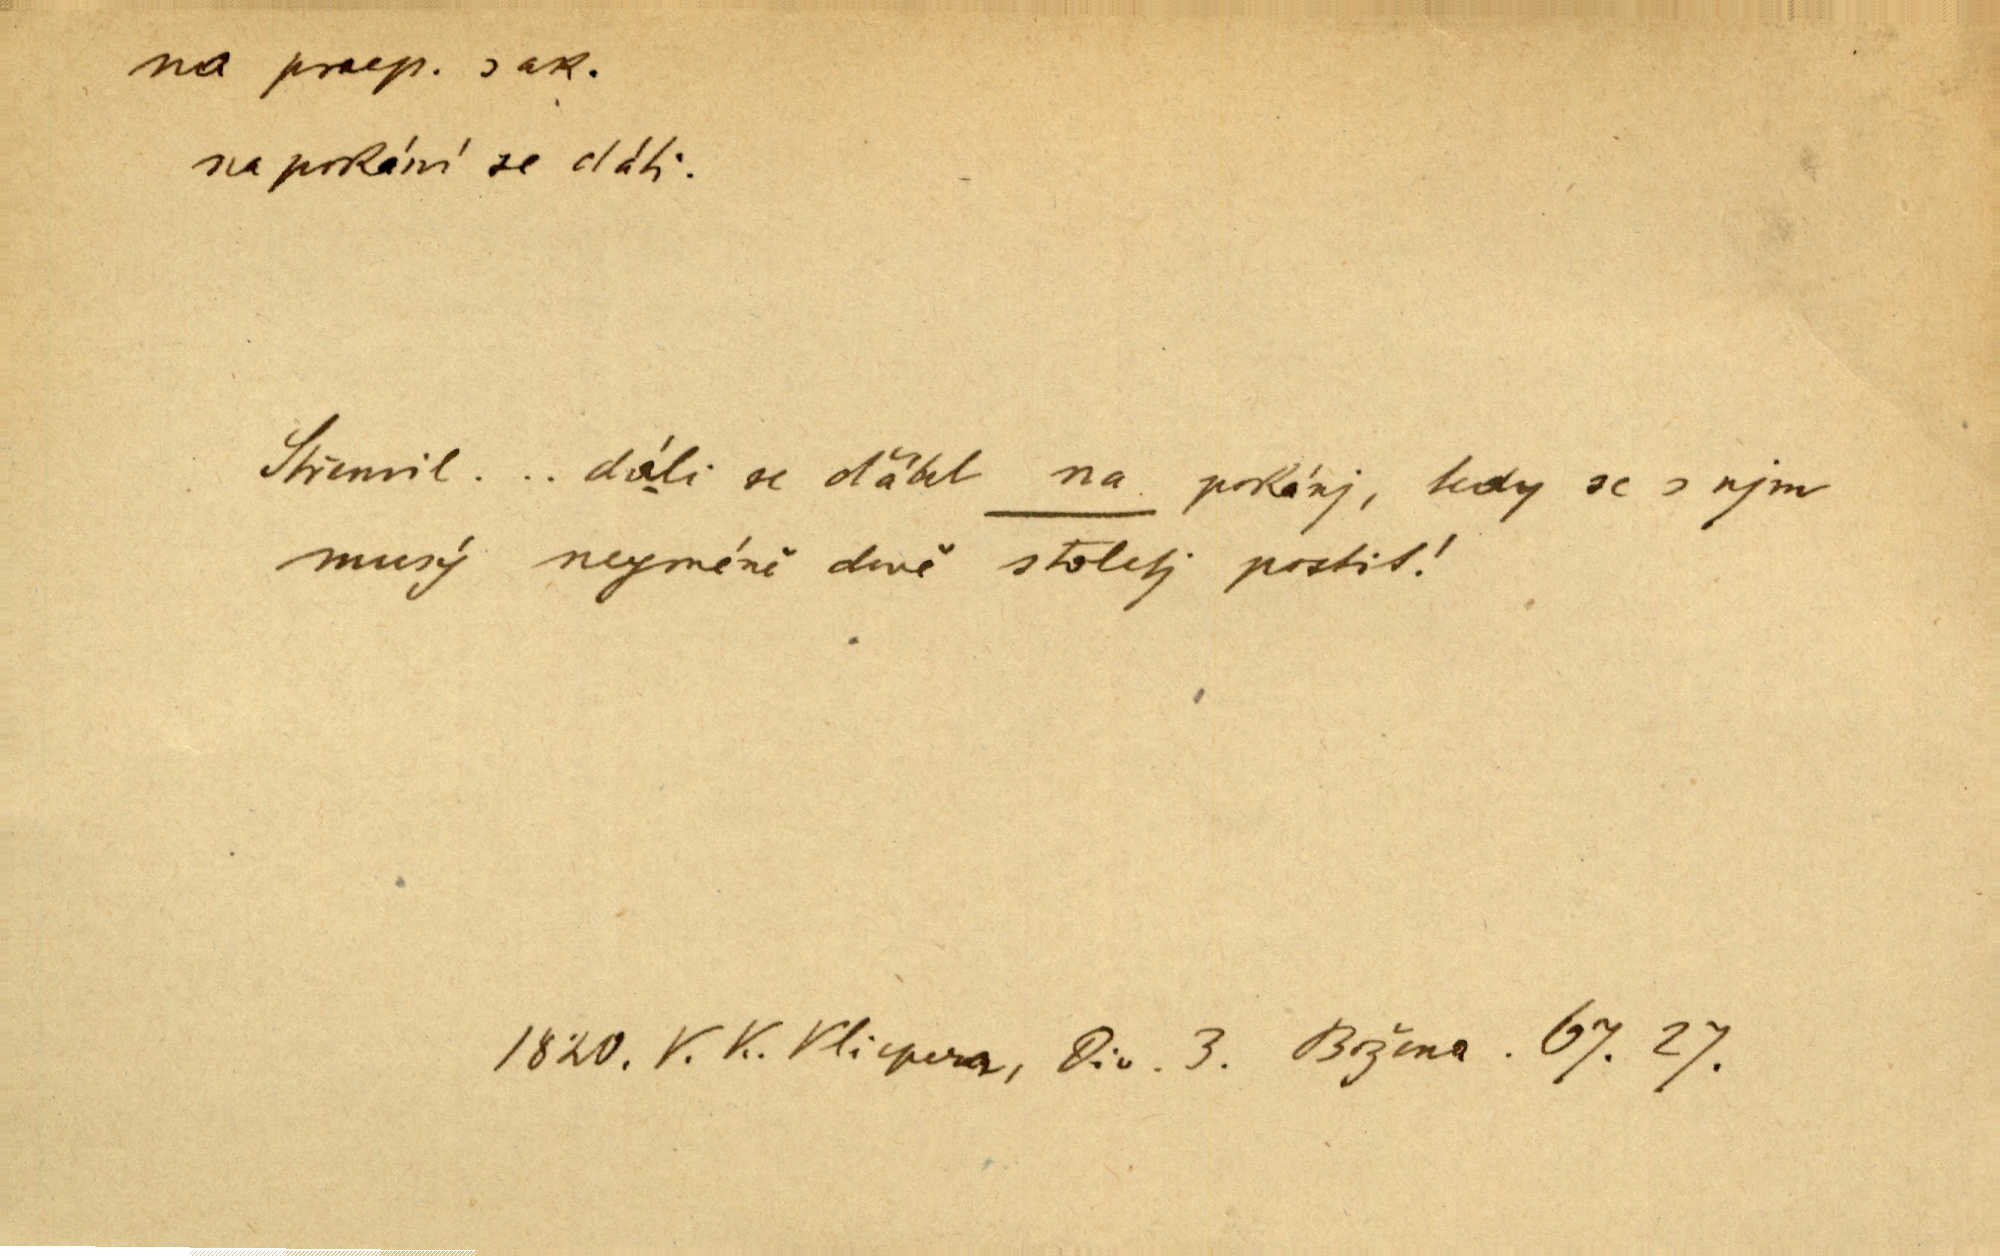 na praep. s ak.
na pokání se dáti.
Střemil... dáli se ďábel na pokánj, tedy se s njm
musý neyméně dvě stoletj postit!
1820. V. K. Klicpera, Div. 3. Božena. 67. 27.